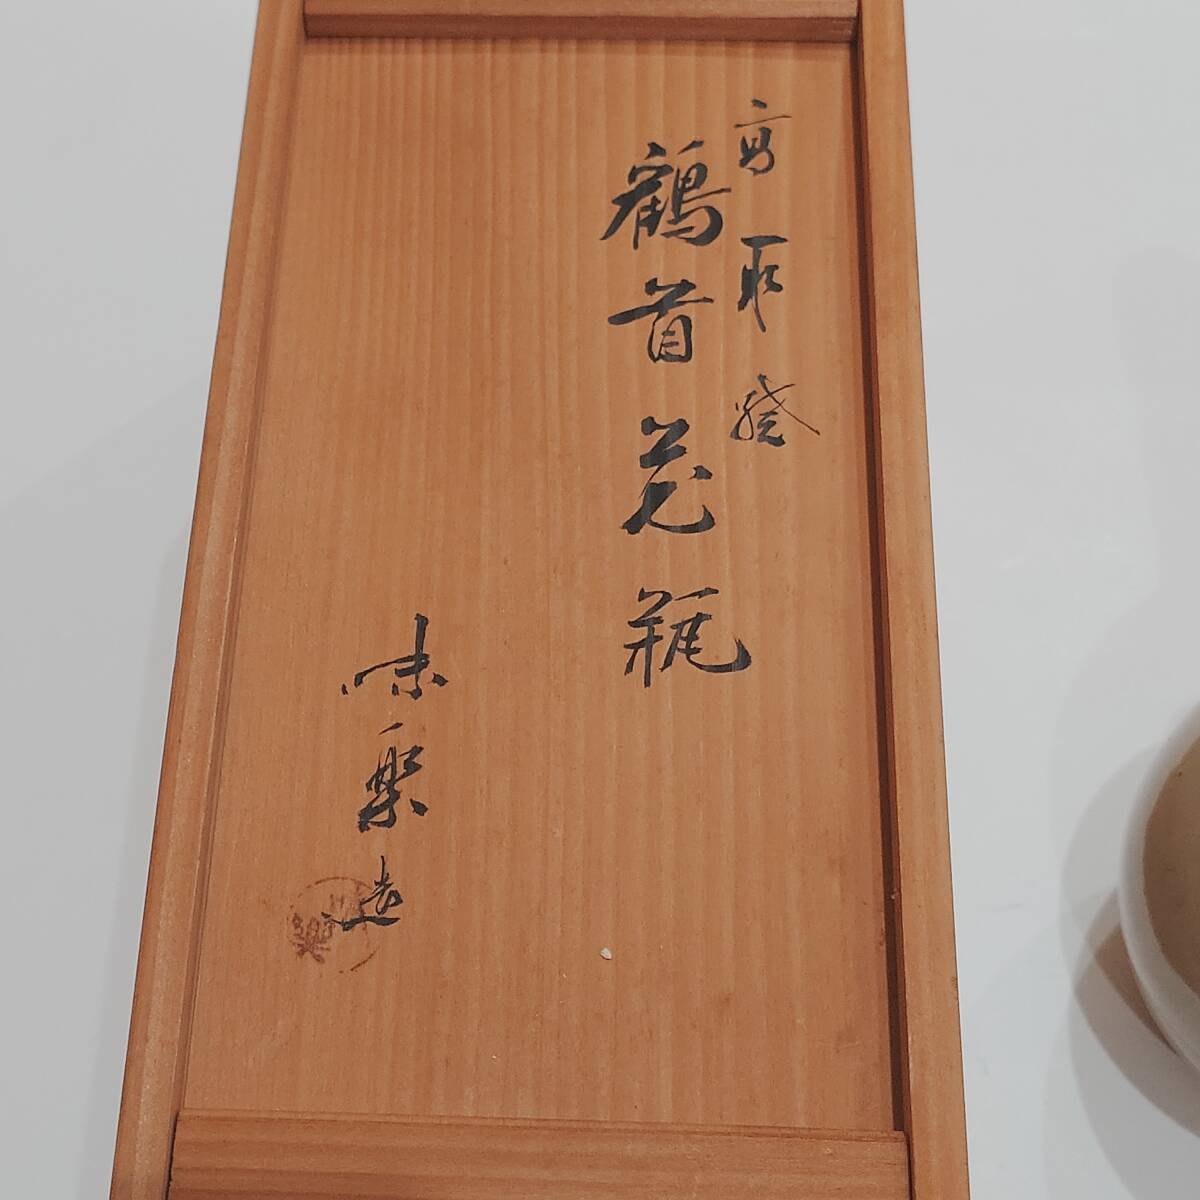 高取焼
鶴首花瓶
味楽造